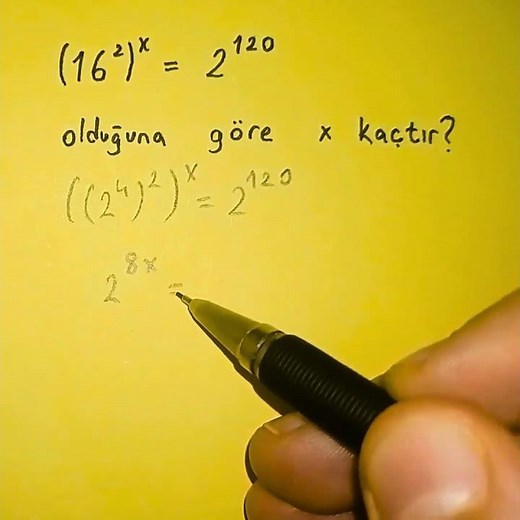 (16²)ˣ = 2¹²⁰
olduğuna göre x kaçtır?
((2⁴)²)ˣ = 2¹²⁰
2⁸ˣ =